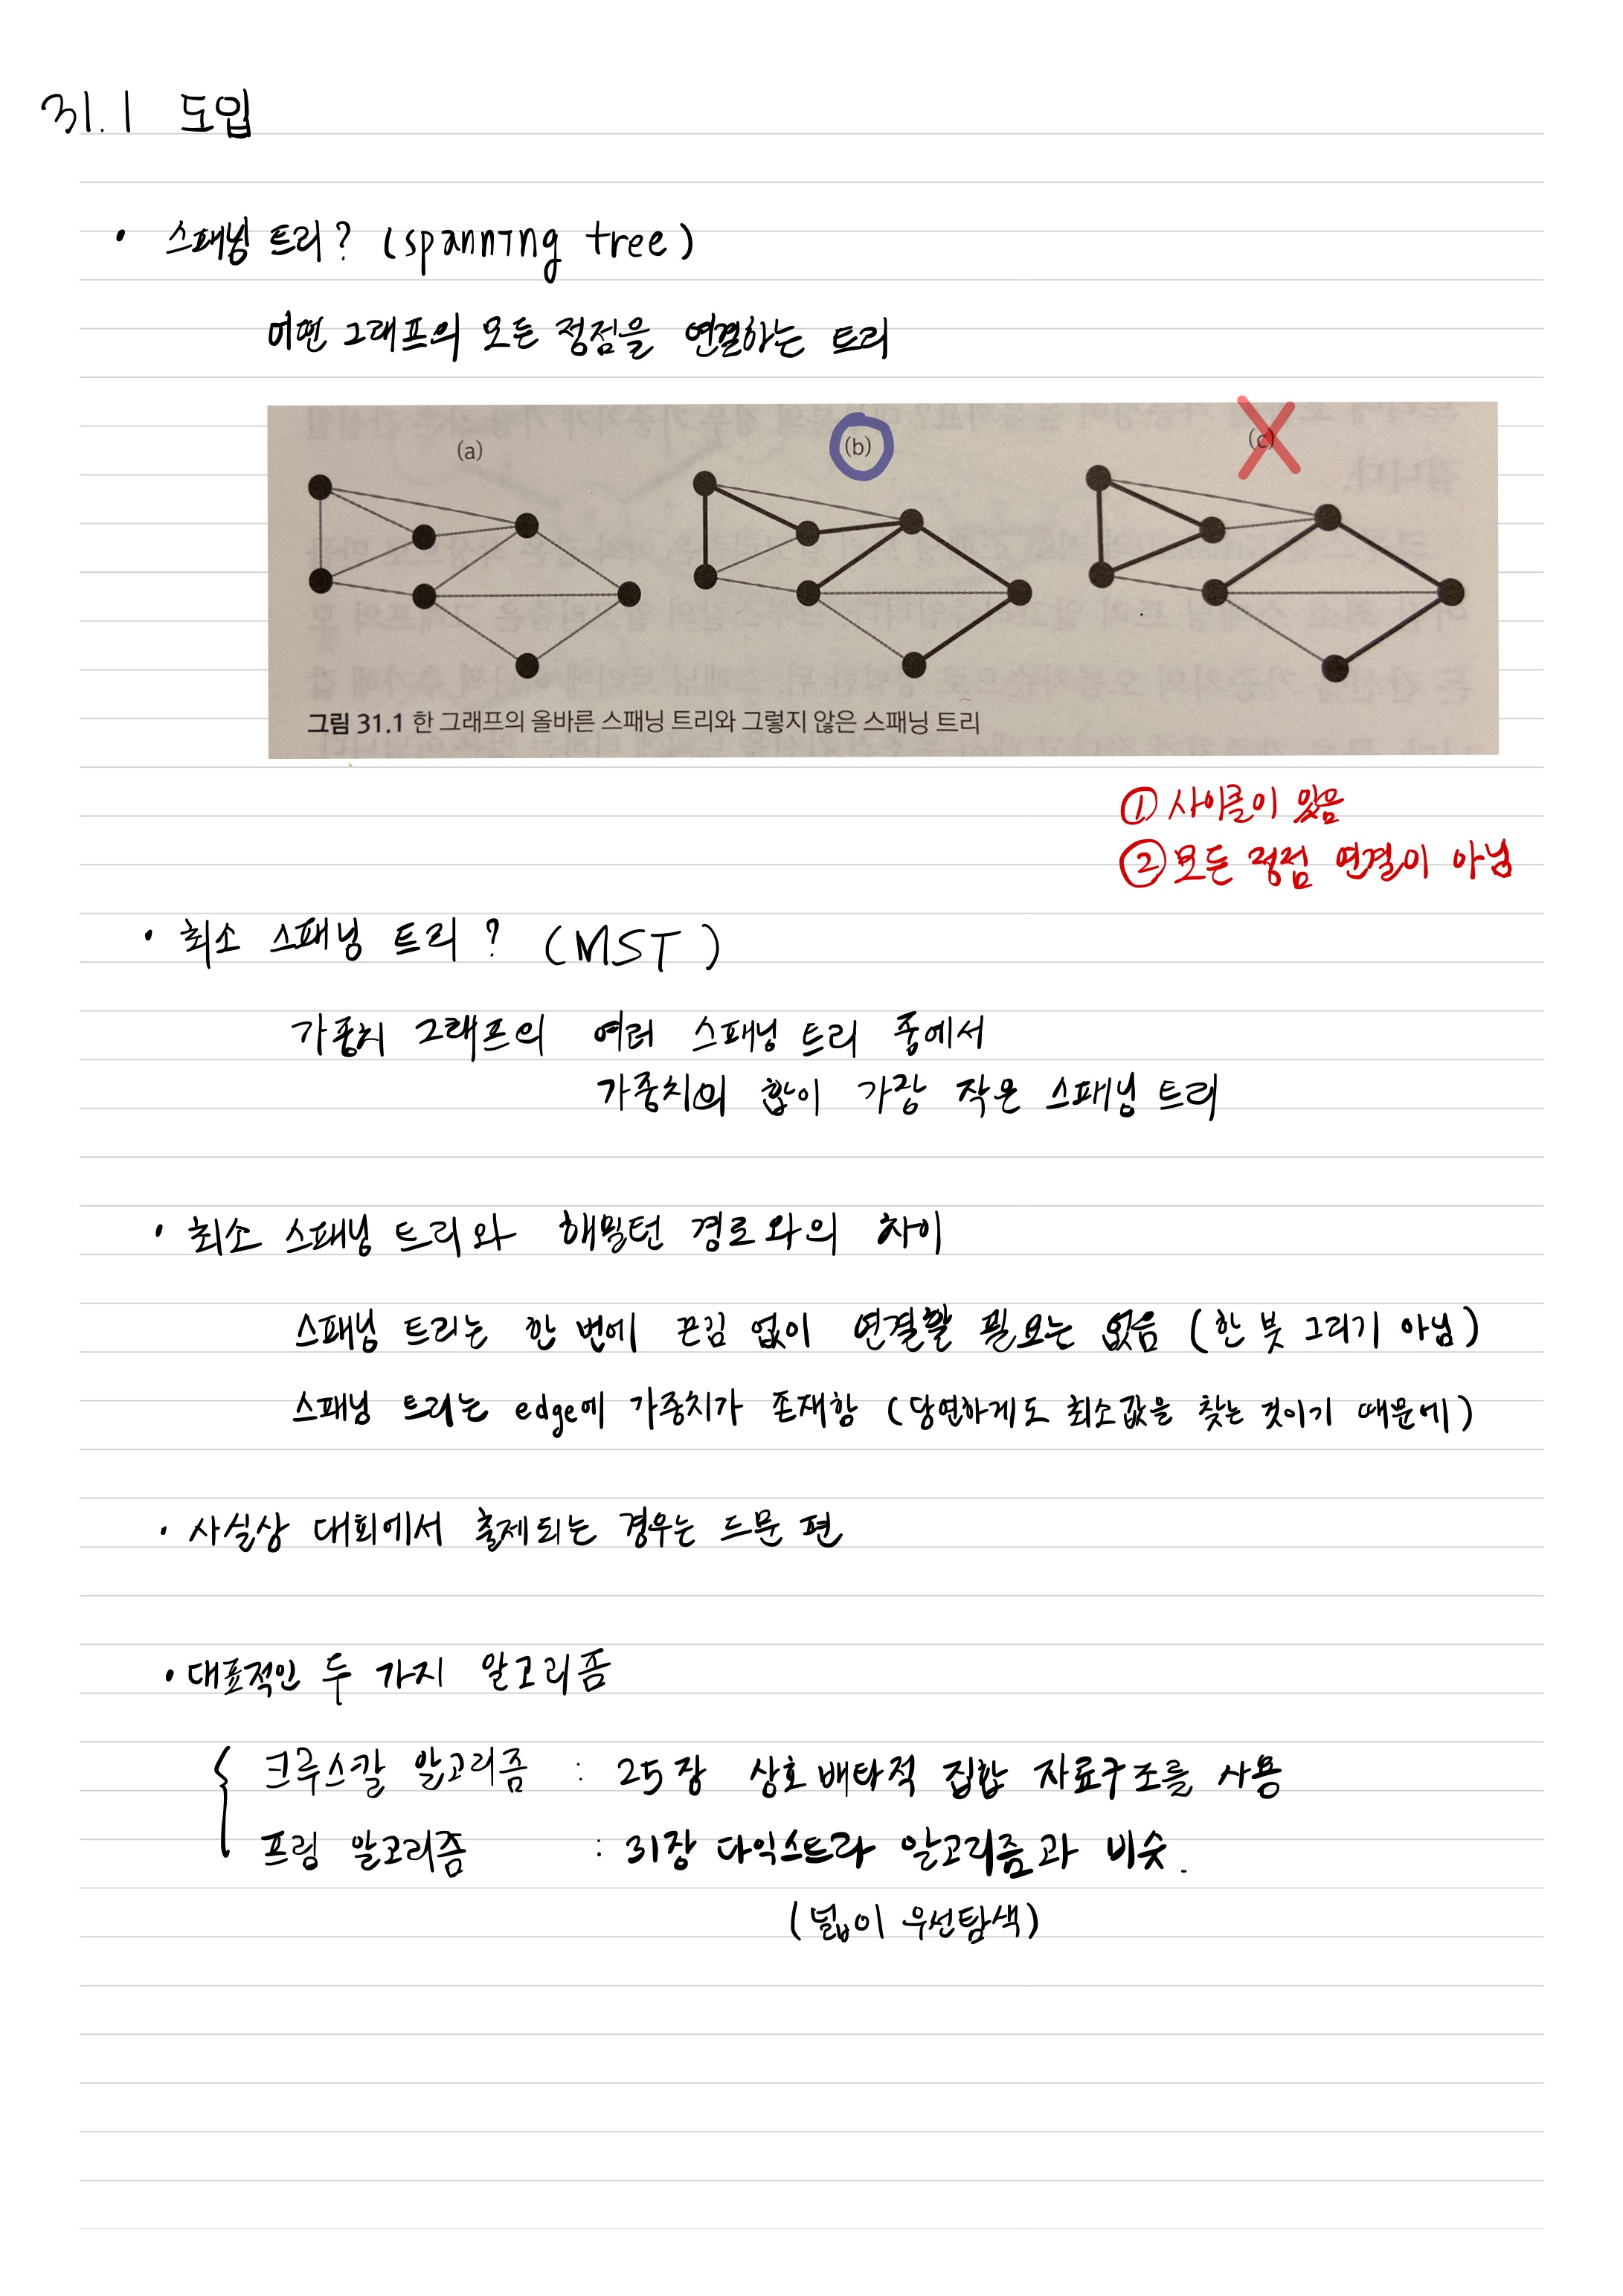 31.1 도입
• 스패닝 트리? (spanning tree)
어떤 그래프의 모든 정점을 연결하는 트리
(a) (b) (c)
그림 31.1 한 그래프의 올바른 스패닝 트리와 그렇지 않은 스패닝 트리
① 사이클이 있음
② 모든 정점 연결이 아님
• 최소 스패닝 트리? (MST)
가중치 그래프의 여러 스패닝 트리 중에서
가중치의 합이 가장 작은 스패닝 트리
• 최소 스패닝 트리와 해밀턴 경로와의 차이
스패닝 트리는 한 번에 끈김 없이 연결할 필요는 없음 (한 붓 그리기 아님)
스패닝 트리는 edge에 가중치가 존재함 (당연하게도 최소값을 찾는 것이기 때문에)
• 사실상 대회에서 출제되는 경우는 드문 편
• 대표적인 두 가지 알고리즘
크루스칼 알고리즘 : 25장 상호 배타적 집합 자료구조를 사용
프림 알고리즘 : 31장 다익스트라 알고리즘과 비슷.
(넓이 우선탐색)